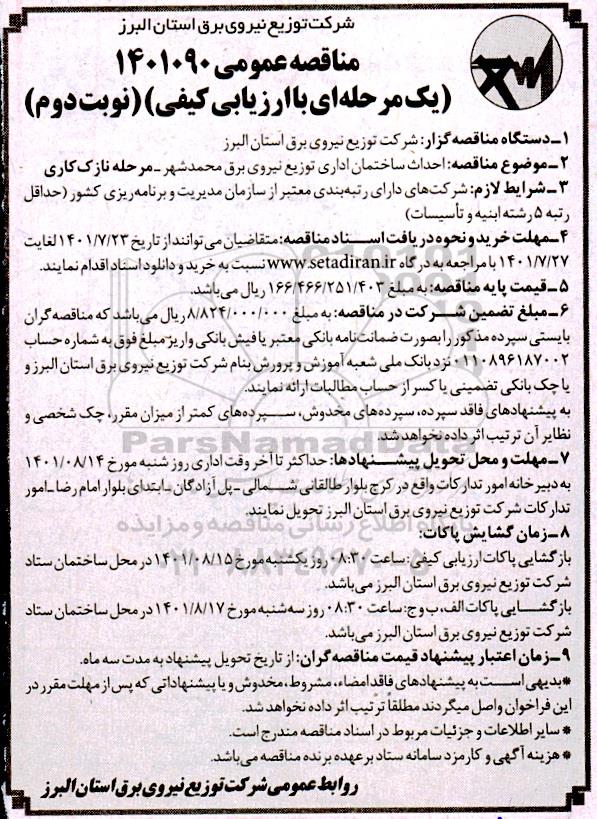 شرکت توزیع نیروی برق استان البرز
مناقصه عمومی ۱۴۰۱۰۹۰
(یک مرحله‌ای با ارزیابی کیفی) (نوبت دوم)
۱ـ دستگاه مناقصه‌گزار: شرکت توزیع نیروی برق استان البرز
۲ـ موضوع مناقصه: احداث ساختمان اداری توزیع نیروی برق محمدشهر ـ مرحله نازک کاری
۳ـ شرایط لازم: شرکت‌های دارای رتبه‌بندی معتبر از سازمان مدیریت و برنامه‌ریزی کشور (حداقل
رتبه ۵ رشته ابنیه و تأسیسات)
۴ـ مهلت خرید و نحوه دریافت اسـناد مناقصه: متقاضیان می‌توانند از تاریخ ۱۴۰۱/۷/۲۳ لغایت
۱۴۰۱/۷/۲۷ با مراجعه به درگاه www.setadiran.ir نسبت به خرید و دانلود اسناد اقدام نمایند.
۵ـ قیمت پایه مناقصه: به مبلغ ۱۶۶/۴۶۶/۲۵۱/۴۰۳ ریال می‌باشد.
۶ـ مبلغ تضمین شـرکت در مناقصه: به مبلغ ۸/۸۲۴/۰۰۰/۰۰۰ ریال می‌باشد که مناقصه‌گران
بایستی سپرده مذکور را بصورت ضمانت‌نامه بانکی معتبر یا فیش بانکی واریز مبلغ فوق به شماره حساب
۰۱۱۰۸۹۶۱۸۷۰۰۲ نزد بانک ملی شعبه آموزش و پرورش بنام شرکت توزیع نیروی برق استان البرز و
یا چک بانکی تضمینی یا کسر از حساب مطالبات ارائه نمایند.
به پیشنهادهای فاقد سپرده، سپرده‌های مخدوش، سـپرده‌های کمتر از میزان مقرر، چک شخصی و
نظایر آن ترتیب اثر داده نخواهد شد.
ParsNamadData
۷ـ مهلت و محل تحویل پیشـنهادها: حداکثر تا آخر وقت اداری روز شنبه مورخ ۱۴۰۱/۰۸/۱۴
به دبیرخانه امور تدارکات واقع در کرج بلوار طالقانی شـمالی ـ پل آزادگان ـ ابتدای بلوار امام رضا ـ امور
تدارکات شرکت توزیع نیروی برق استان البرز تحویل نمایند.
پایگاه اطلاع رسانی مناقصه و مزایده
۸ـ زمان گشایش پاکات:
بازگشایی پاکات ارزیابی کیفی: ساعت ۰۸:۳۰ روز یکشنبه مورخ ۱۴۰۱/۰۸/۱۵ در محل ساختمان ستاد
شرکت توزیع نیروی برق استان البرز می‌باشد.
بازگشـایی پاکات الف، ب و ج: ساعت ۰۸:۳۰ روز سه‌شنبه مورخ ۱۴۰۱/۸/۱۷ در محل ساختمان ستاد
شرکت توزیع نیروی برق استان البرز می‌باشد.
۹ـ زمان اعتبار پیشنهاد قیمت مناقصه‌گران: از تاریخ تحویل پیشنهاد به مدت سه ماه.
*بدیهی اسـت به پیشنهادهای فاقد امضاء، مشروط، مخدوش و یا پیشنهاداتی که پس از مهلت مقرر در
این فراخوان واصل میگردند مطلقاً ترتیب اثر داده نخواهد شد.
* سایر اطلاعات و جزئیات مربوط در اسناد مناقصه مندرج است.
* هزینه آگهی و کارمزد سامانه ستاد برعهده برنده مناقصه می‌باشد.
روابط عمومی شرکت توزیع نیروی برق استان البرز